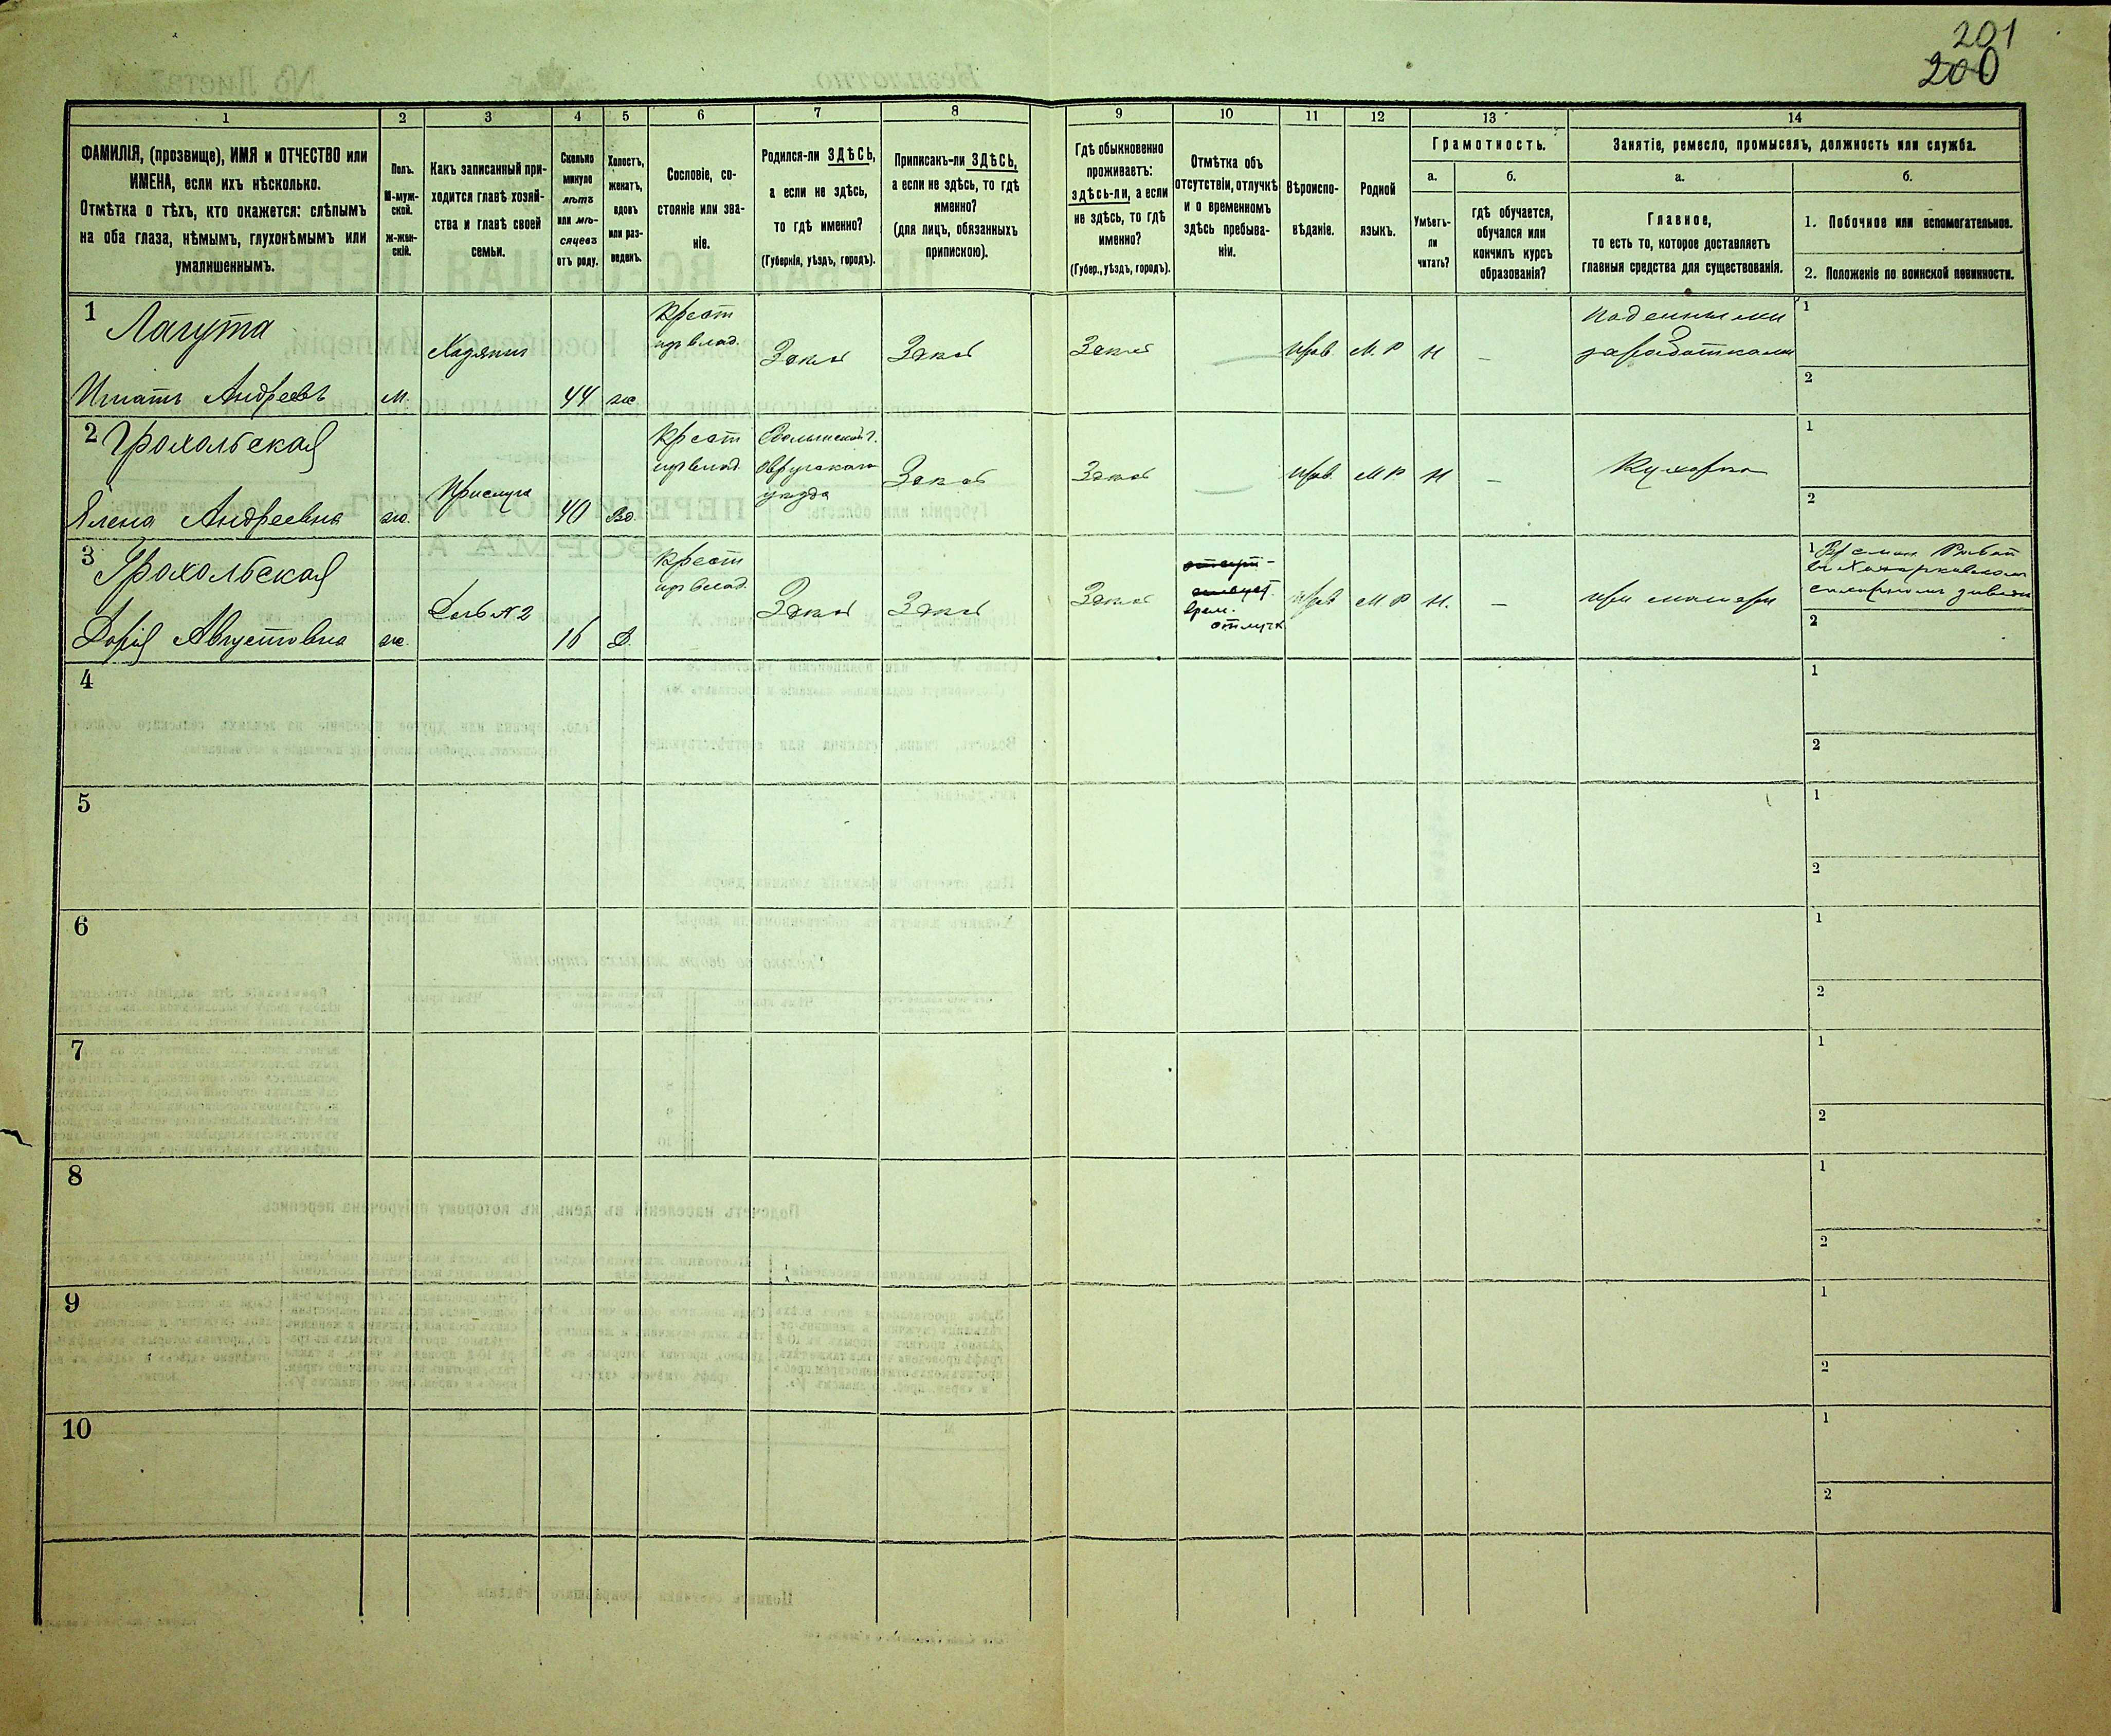 201
200
1
2
3
4
5
6
7
8
9
10
11
12
13
14
ФАМИЛІЯ, (прозвище), ИМЯ и ОТЧЕСТВО или
ИМЕНА, если ихъ нѣсколько.
Отмѣтка о тѣхъ, кто окажется: слѣпымъ
на оба глаза, нѣмымъ, глухонѣмымъ или
умалишеннымъ.
Полъ.
М-муж-
ской.
Ж-жен-
скій.
Какъ записанный при-
ходится главѣ хозяй-
ства и главѣ своей
семьи.
Сколько
минуло
лѣтъ
или мѣ-
сяцевъ
отъ роду.
Холостъ,
женатъ,
вдовъ
или раз-
веденъ.
Сословіе, со-
стояніе или зва-
ніе.
Родился-ли ЗДѢСЬ,
а если не здѣсь,
то гдѣ именно?
(Губернія, уѣздъ, городъ).
Приписанъ-ли ЗДѢСЬ,
а если не здѣсь, то гдѣ
именно?
(для лицъ, обязанныхъ
припискою).
Гдѣ обыкновенно
проживаетъ:
здѣсь-ли, а если
не здѣсь, то гдѣ
именно?
(Губер., уѣздъ, городъ).
Отмѣтка объ
отсутствіи, отлучкѣ
и о временномъ
здѣсь пребыва-
ніи.
Вѣроиспо-
вѣданіе.
Родной
языкъ.
Грамотность.
а.
Умѣетъ-
ли
читать?
б.
гдѣ обучается,
обучался или
кончилъ курсъ
образованія?
Занятіе, ремесло, промыселъ, должность или служба.
а.
Главное,
то есть то, которое доставляетъ
главныя средства для существованія.
б.
1. Побочное или вспомогательное.
2. Положеніе по воинской повинности.
1
Лагута
Игнатъ Андреевъ
м.
Хозяинъ
44
ж
Крест
из влад.
Здесь
Здесь
Здесь
Прав.
М. Р
Н
—
Поденными
заработками
1
2
2
Грохольская
Елена Андреевна
ж.
Прислуга
40
Вд.
Крест
из влад.
Волынской г.
Овручскаго
уезда
Здесь
Здесь
Прав.
М Р
Н
—
Кухарка
1
2
3
Грохольская
Дарія Августовна
ж.
Дочь №2
16
Д.
Крест
из влад.
Здесь
Здесь
Здесь
врем.
отлучк
Прав
М Р
Н.
—
при матери
1
сахарном заводе
2
4
1
2
5
1
2
6
1
2
7
1
2
8
1
2
9
1
2
10
1
2